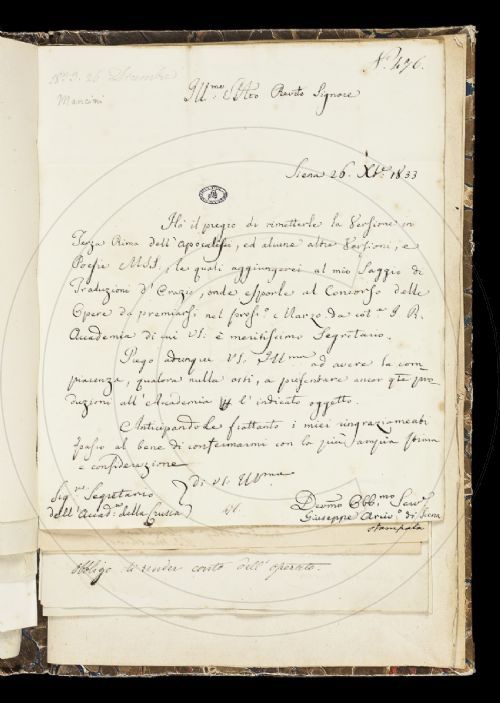 N.° 496.
1833. 26 Dicembre
Mancini
Ill.mo e Rev.do Signore
Siena 26. Xbre 1833
Ho il pregio di rimetterle la Versione in
Terza Rima dell'Apocalisse, ed alcune altre Versioni, e
Poesie MSS, le quali aggiungerei al mio Saggio di
Traduzioni d'Orazio, onde esporle al Concorso delle
Opere da premiarsi nel pross.o Marzo da cot.a I. R.
Accademia di cui VS. è meritissimo Segretario.
Prego adunque VS. Ill.ma ad avere la com-
piacenza, qualora nulla osti, a presentare ancor q.te pro-
duzioni all'Accademia l'indicato oggetto.
Anticipandole frattanto i miei ringraziamenti
passo al bene di confermarmi con la più ampia stima
e considerazione
di VS. Ill.ma
Sig.r Segretario
dell'Accad.a della Crusca
Devmo Obb.mo Serv.e
Giuseppe Arciv.o di Siena
stampata
obbligo di render conto dell'operato.